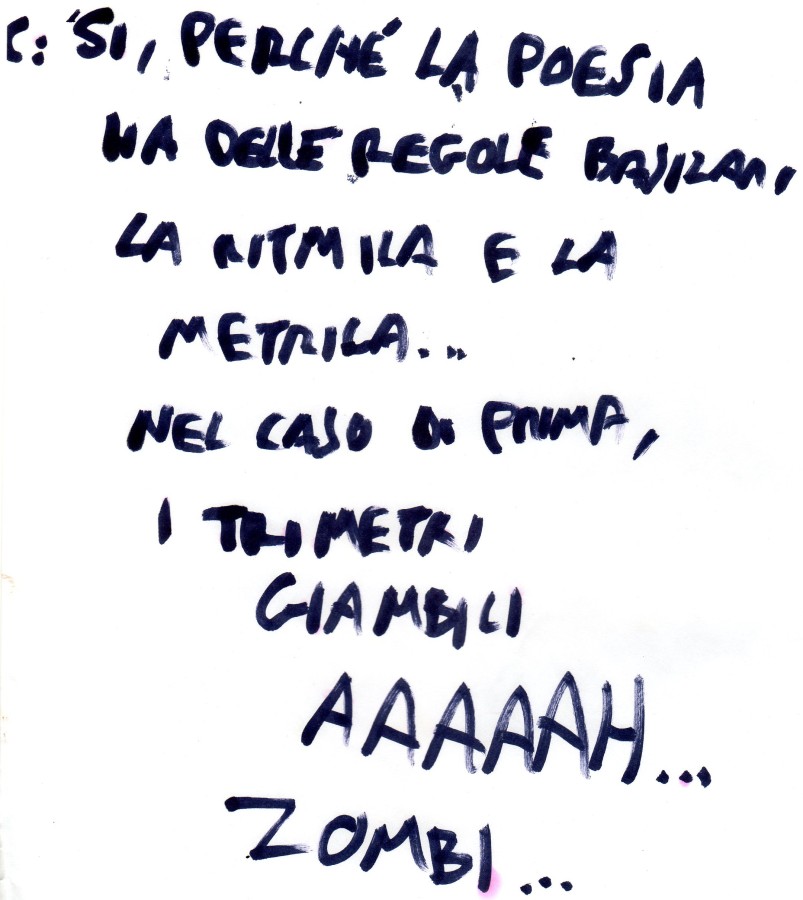 C: SI, PERCHÉ LA POESIA
HA DELLE REGOLE BASILARI,
LA RITMICA E LA
METRICA...
NEL CASO DI PRIMA,
I TRIMETRI
GIAMBICI
AAAAAH...
ZOMBI...